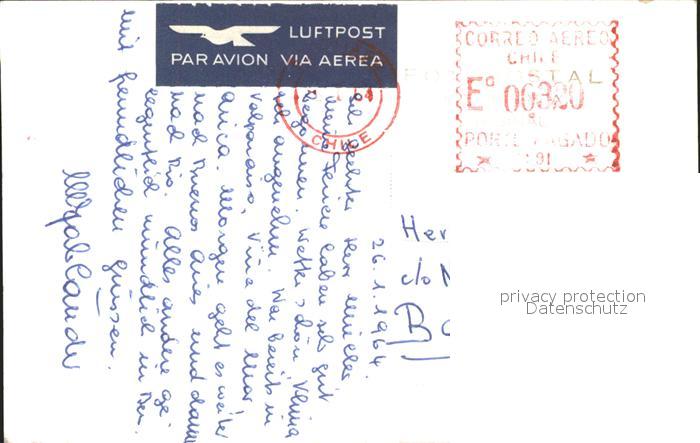 LUFTPOST
PAR AVION VIA AEREA
CORREO AEREO
CHILE
POSTAL
Eº 00320
PORTE PAGADO
191
CHILE
26.1.1964
geehrter Herr
Meine Ferien haben sehr gut
begonnen. Wetter schön, Klima
sehr angenehm. War bereits in
Valparaiso, Viña del Mar,
Arica. Morgen geht es weiter
nach Buenos Aires und dann
nach Rio. Alles andere ge-
legentlich mündlich in
mit freundlichen Grüssen.
Her
c/o
privacy protection
Datenschutz